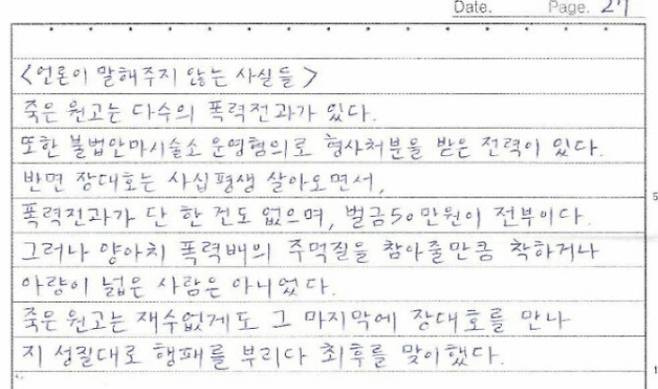 Date. Page. 27
<언론이 말해주지 않는 사실들>
죽은 원고는 다수의 폭력전과가 있다.
또한 불법안마시술소 운영혐의로 형사처분을 받은 전력이 있다.
반면 장대호는 사십평생 살아오면서,
폭력전과가 단 한 건도 없으며, 벌금50만원이 전부이다.
그러나 양아치 폭력배의 주먹질을 참아줄만큼 착하거나
아량이 넓은 사람은 아니었다.
죽은 원고는 재수없게도 그 마지막에 장대호를 만나
지 성질대로 행패를 부리다 최후를 맞이했다.
5
1